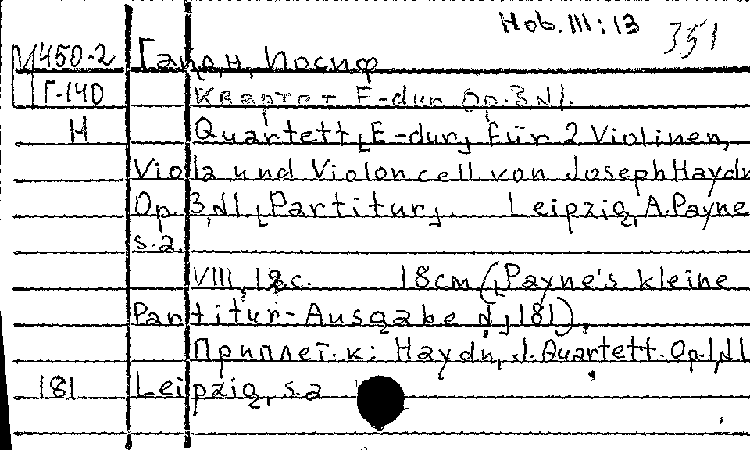 Hob. III:13 351
М450-2 Гайдн, Иосиф
Г-140 Квартет E-dur Op.3 N1.
H Quartett [E-dur] für 2 Violinen,
Viola und Violoncell von Joseph Haydn
Op. 3, N1. [Partitur]. Leipzig, A. Payne
s.a.
VIII, 18 c. 18 см ([Payne's kleine
Partitur-Ausgabe N] 181).
Приплет. к: Haydn, J. Quartett. Op. 1, N1
181 Leipzig, s.a